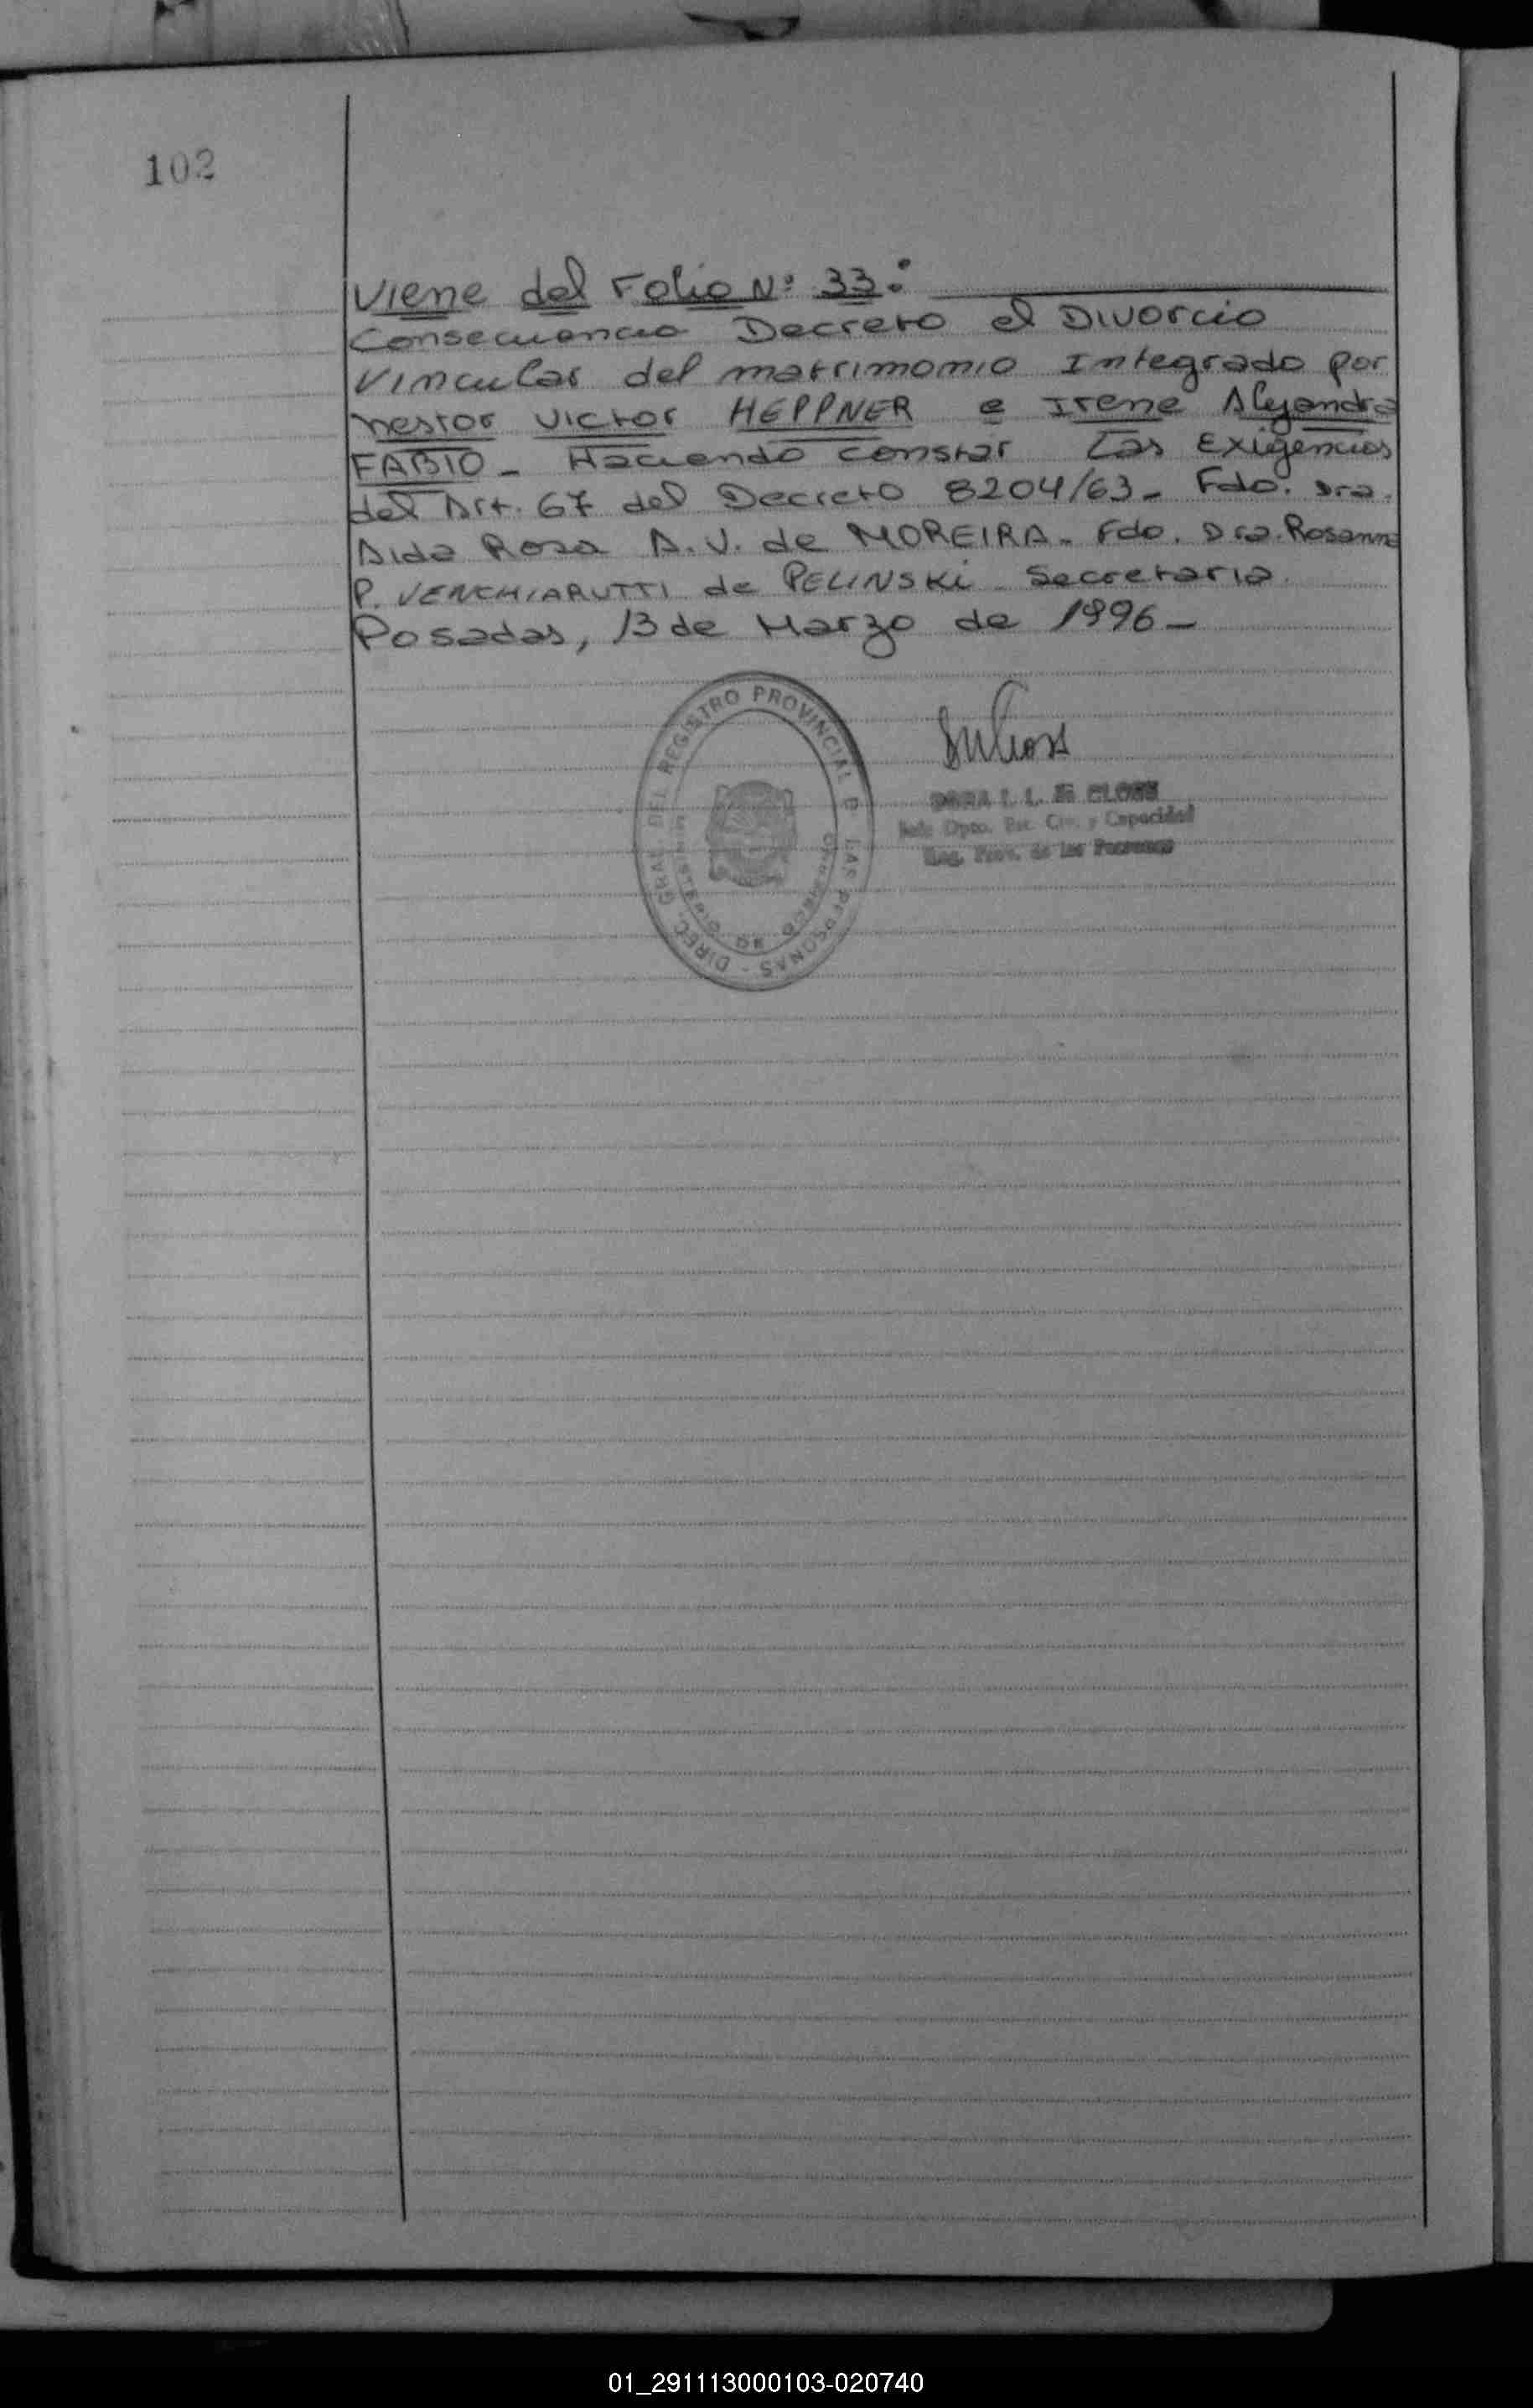 102
Viene del Folio Nº 33:
Consecuencia Decreto el Divorcio
Vincular del matrimonio Integrado por
Nestor Victor HEPPNER e Irene Alejandra
FABIO - Haciendo constar Las Exigencias
del Art. 67 del Decreto 8204/63 - Fdo. Dra.
Aida Rosa A. V. de MOREIRA - Fdo. Dra. Rosanna
P. VENCHIARUTTI de PELINSKI - Secretaria.
Posadas, 13 de Marzo de 1996 -
DIREC. GRAL. DEL REGISTRO PROVINCIAL D LAS PERSONAS -
I. L. CLOSS
Dpto. Est. Civ. y Capacidad
Reg. Prov. de las Personas
01_291113000103-020740